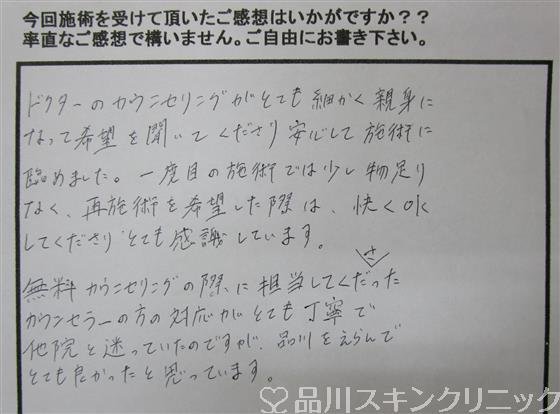 今回施術を受けて頂いたご感想はいかがですか？？
率直なご感想で構いません。ご自由にお書き下さい。
ドクターのカウンセリングがとても細かく親身に
なって希望を聞いてくださり安心して施術に
臨めました。一度目の施術では少し物足り
なく、再施術を希望した際は、快くOK
してくださりとても感謝しています。
無料カウンセリングの際に担当してくださった
カウンセラーの方の対応がとても丁寧で
他院と迷っていたのですが、品川をえらんで
とても良かったと思っています。
品川スキンクリニック